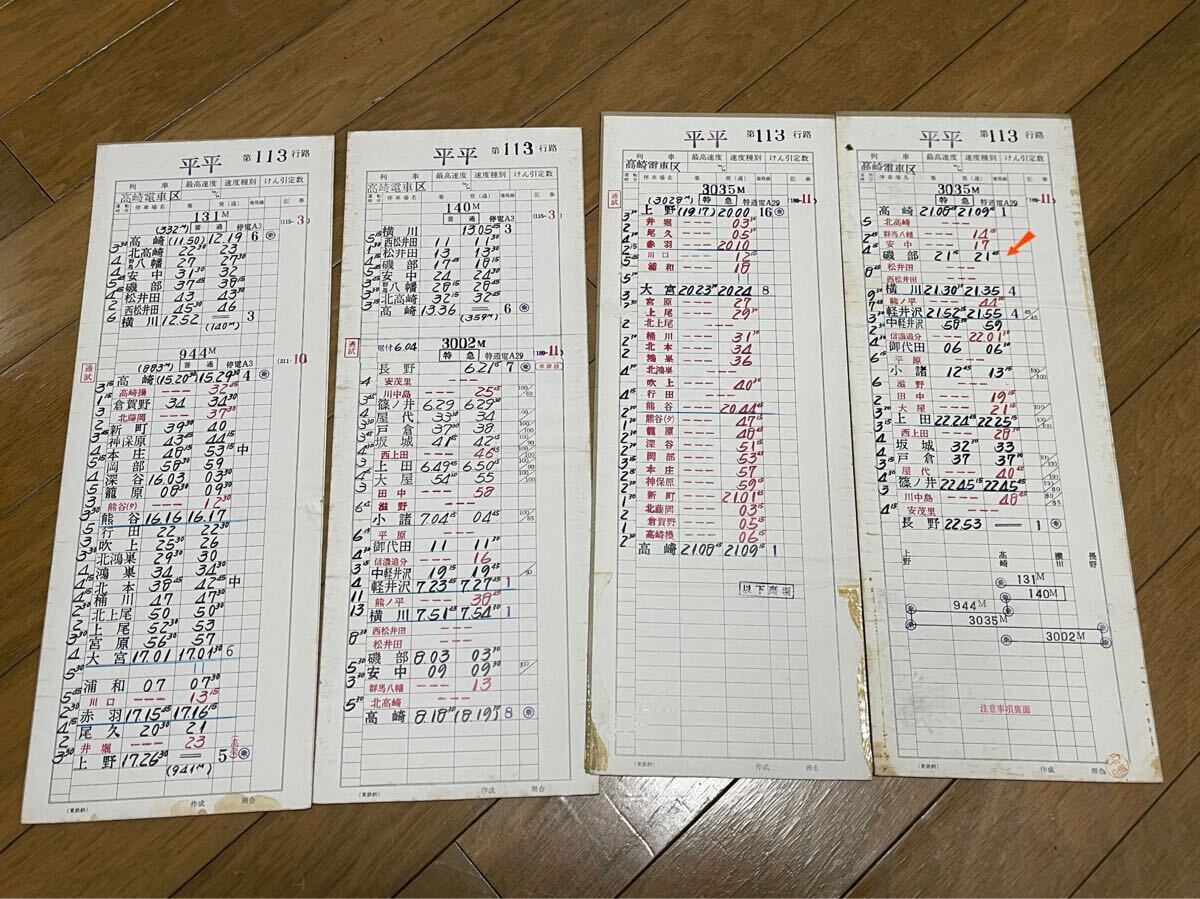 平平 第113行路
列車 最高速度 速度種別 けん引定数
高崎電車区
運転時分 停車場名 着 発(通) 着発線 記事
131M
(332M) 普通 停電A3 (115-3)
高崎 (11.50) 12.19 6
北高崎 22 23
群馬八幡 27 27
安中 31 32
磯部 37 38
松井田 43 43
西松井田 45 46
横川 12.52 3
(140M)
944M
(883M) 普通 停電A3 (211-10)
通試
高崎 (15.20) 15.29 4
高崎操 --- 32
倉賀野 34 34
北藤岡 --- 37
新町 39 40
神保原 43 44
本庄 48 53 中
岡部 58 59
深谷 16.03 03
籠原 08 09
熊谷(タ) --- 12
熊谷 16.16 16.17
行田 22 22
吹上 25 26
北鴻巣 29 30
鴻巣 34 34
北本 38 42 中
桶川 47 47
北上尾 50 50
上尾 52 53
宮原 56 57
大宮 17.01 17.01 6
浦和 07 07
川口 --- 13
赤羽 17.15 17.16
尾久 20 21
井堀 --- 23
上野 17.26 5
(941M)
(東鉄納) 作成 照合
平平 第113行路
列車 最高速度 速度種別 けん引定数
高崎電車区
運転時分 停車場名 着 発(通) 着発線 記事
140M
普通 停電A3 (115-3)
横川 13.05 3
西松井田 11 11
松井田 13 13
磯部 17 18
安中 24 24
群馬八幡 28 28
北高崎 32 32
高崎 13.36 6
(359M)
通試
据付 6.04 3002M
特急 特通電A29 189-11
長野 6.21 7
安茂里
川中島 --- 25
篠ノ井 6.29 6.29
屋代 33 34
戸倉 37 38
坂城 41 42
西上田 --- 46
上田 6.49 6.50
大屋 54 55
田中 --- 58
滋野
小諸 7.04 04
平原 ---
御代田 11 11
信濃追分 --- 16
中軽井沢 19 19
軽井沢 7.23 7.27 1
熊ノ平 --- 38
横川 7.51 7.54 1
西松井田
松井田 ---
磯部 8.03 03
安中 09 09
群馬八幡 --- 13
北高崎
高崎 8.18 (8.19) 8
(東鉄納) 作成 照合
平平 第113行路
列車 最高速度 速度種別 けん引定数
高崎電車区
運転時分 停車場名 着 発(通) 着発線 記事
3035M
通試
(3028M) 特急 特通電A29 189-11
上野 (19.17) 20.00 16
井堀 --- 03
尾久 --- 05
赤羽 --- 20.10
川口 --- 12
浦和 --- 18
大宮 20.23 20.24 8
宮原 --- 27
上尾 --- 29
北上尾 ---
桶川 --- 31
北本 --- 34
鴻巣 --- 36
北鴻巣 ---
吹上 --- 40
行田 ---
熊谷 --- 20.44
熊谷(タ) --- 47
籠原 --- 48
深谷 --- 51
岡部 --- 53
本庄 --- 57
神保原 --- 59
新町 --- 21.01
北藤岡 --- 03
倉賀野 --- 05
高崎操 --- 06
高崎 21.08 21.09 1
以下裏面
(東鉄納) 作成 照合
平平 第113行路
列車 最高速度 速度種別 けん引定数
高崎電車区
運転時分 停車場名 着 発(通) 着発線 記事
3035M
特急 特通電A29 189-11
高崎 21.08 21.09 1
北高崎 ---
群馬八幡 --- 14
安中 --- 17
磯部 21 21
松井田 ---
西松井田 ---
横川 21.30 21.35 4
熊ノ平 --- 44
軽井沢 21.52 21.55 4
中軽井沢 58 59
信濃追分 --- 22.01
御代田 06 06
平原 ---
小諸 12 13
滋野 ---
田中 --- 19
大屋 --- 21
上田 22.24 22.25
西上田 --- 28
坂城 32 33
戸倉 37 37
屋代 --- 40
篠ノ井 22.45 22.45
川中島 --- 48
安茂里 ---
長野 22.53 1
上野 高崎 横川 長野
131M
140M
944M
3035M
3002M
注意事項裏面
(東鉄納) 作成 照合